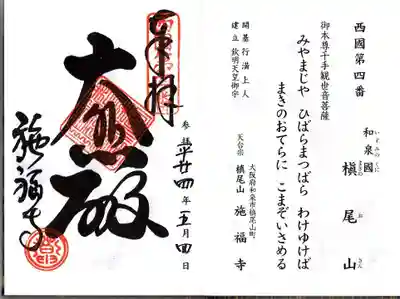 西國第四番
和泉國 槇尾山
いずみのくに まきのおさん
御本尊千手観世音菩薩
みやまじや ひばらまつばら わけゆけば
まきのおてらに こまぞいさめる
開基行満上人
建立 欽明天皇御宇
大阪府和泉市槇尾山町
天台宗 槇尾山 施福寺
奉拝
参拝 平廿四年五月四日
大悲殿
施福寺